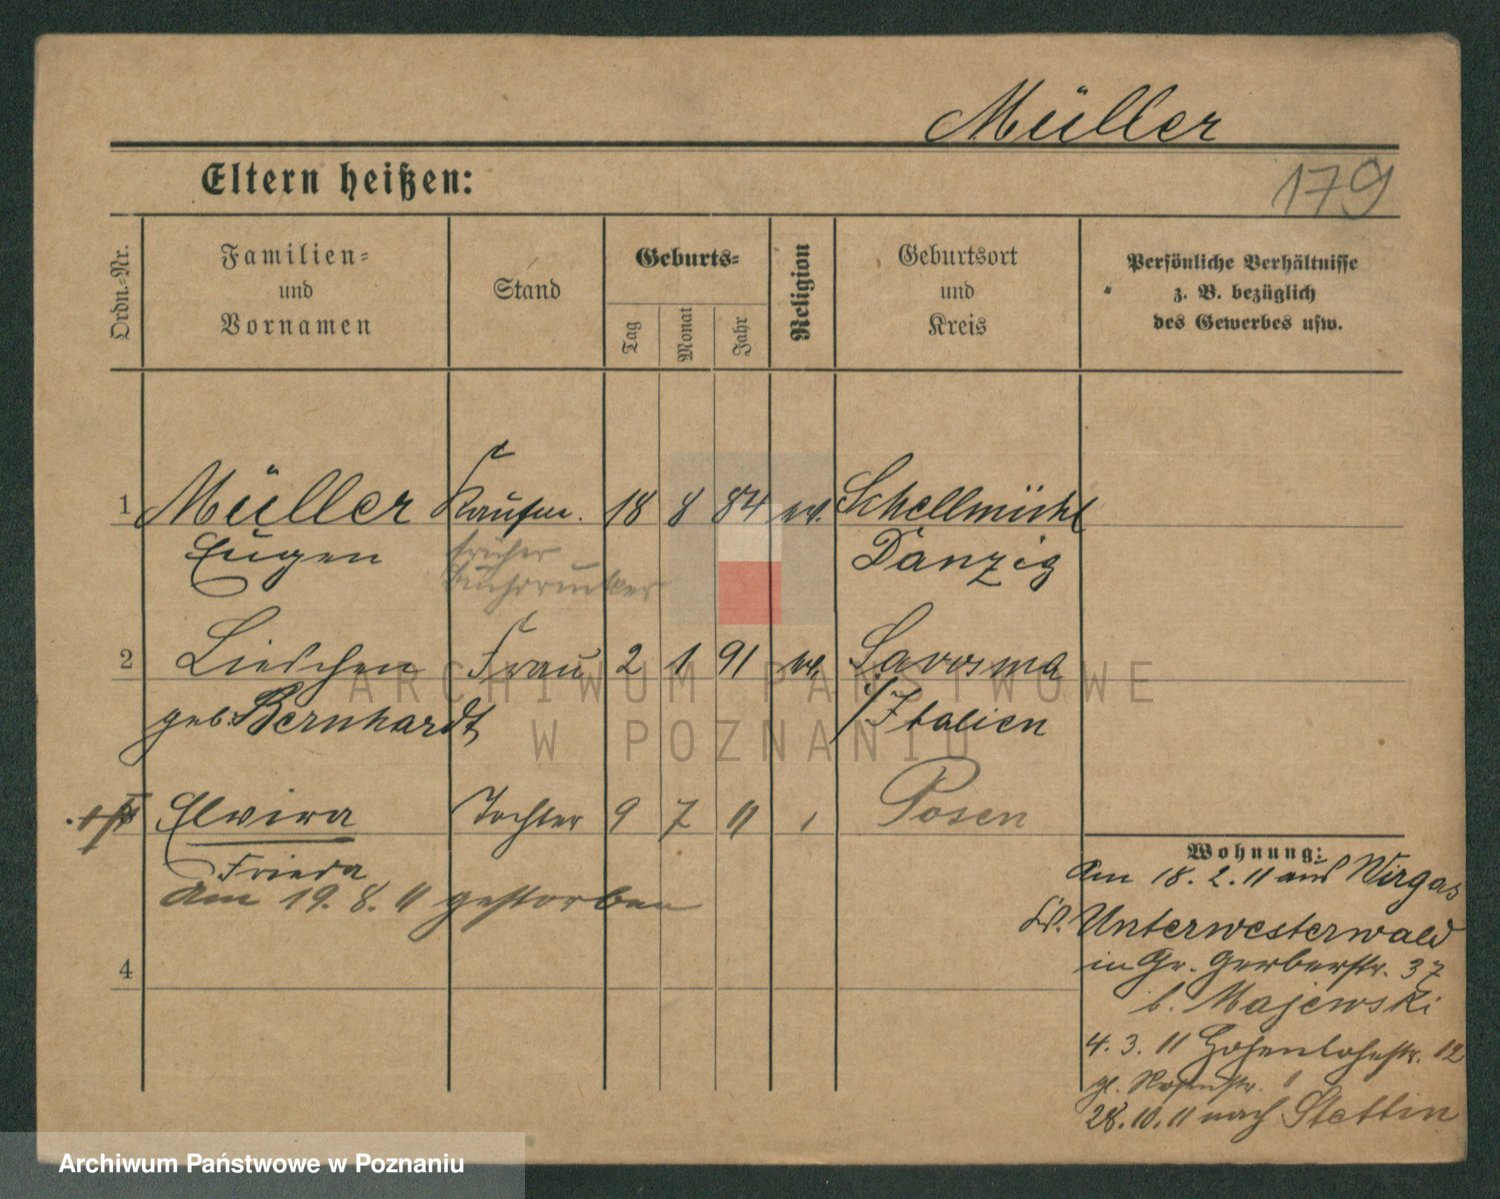 Müller
Eltern heißen:
179
Ordn.-Nr.
Familien- und Vornamen
Stand
Geburts-
Tag
Monat
Jahr
Religion
Geburtsort und Kreis
Persönliche Verhältnisse
z. B. bezüglich
des Gewerbes usw.
1 Müller Kaufm. 18 8 84 ev. Schellmühl
Eugen früher Danzig
Buchdrucker
2 Lieschen Frau 2 1 91 ev.
geb. Bernhardt i/Italien
Elvira Tochter 9 7 11 Posen
Frieda
am 19. 8. 11 gestorben
4
Wohnung:
Am 18. 2. 11 aus Wirges
Unterwesterwald
in Gr. Gerberstr. 37
b. Majewski
4. 3. 11 Hohenlohestr. 12
28. 10. 11 nach Stettin
ARCHIWUM PAŃSTWOWE
W POZNANIU
Archiwum Państwowe w Poznaniu